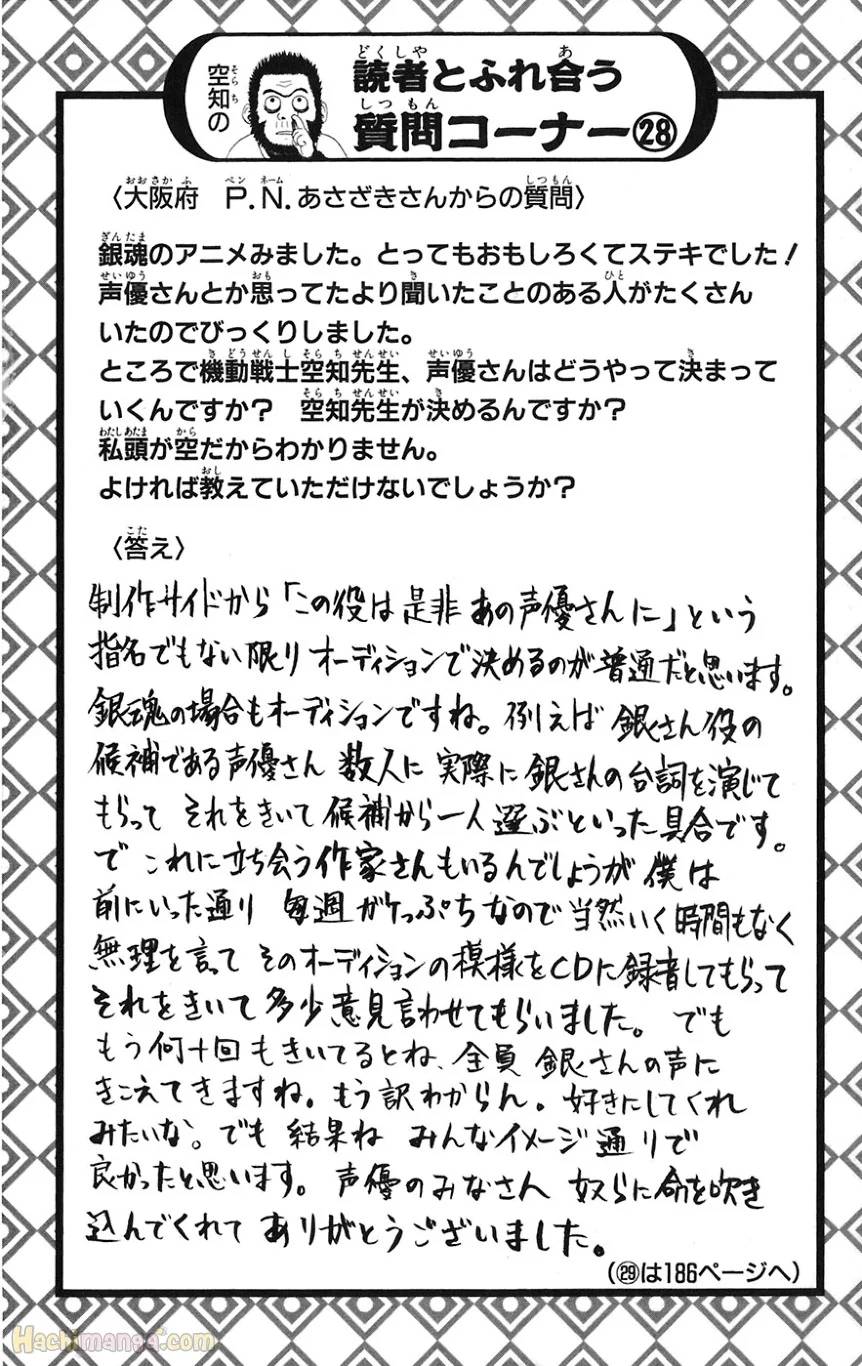 空知の
読者とふれ合う
質問コーナー㉘
〈大阪府　P.N.あさざきさんからの質問〉
銀魂のアニメみました。とってもおもしろくてステキでした！
声優さんとか思ってたより聞いたことのある人がたくさん
いたのでびっくりしました。
ところで機動戦士空知先生、声優さんはどうやって決まって
いくんですか？　空知先生が決めるんですか？
私頭が空だからわかりません。
よければ教えていただけないでしょうか？
〈答え〉
制作サイドから「この役は是非あの声優さんに」という
指名でもない限りオーディションで決めるのが普通だと思います。
銀魂の場合もオーディションですね。例えば銀さん役の
候補である声優さん数人に実際に銀さんの台詞を演じて
もらって それをきいて候補から一人選ぶといった具合です。
で これに立ち会う作家さんもいるんでしょうが僕は
前にいった通り 毎週ガケっぷちなので当然いく時間もなく
無理を言って そのオーディションの模様をCDに録音してもらって
それをきいて多少意見言わせてもらいました。でも
もう何十回もきいてるとね、全員 銀さんの声に
きこえてきますね。もう訳わからん。好きにしてくれ
みたいな。でも 結果ね みんなイメージ通りで
良かったと思います。声優のみなさん 奴らに命を吹き
込んでくれて ありがとうございました。
（㉙は186ページへ）
Hachimanga.com